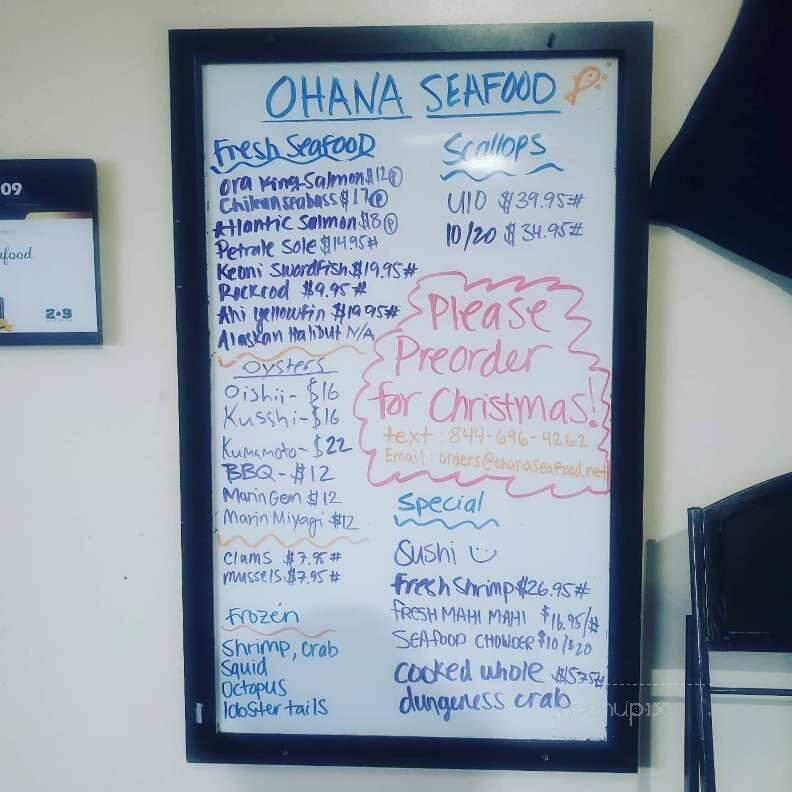 OHANA SEAFOOD
Fresh Seafood
Ora King Salmon $12 P
Chilean seabass $17 P
Atlantic Salmon $8 P
Petrale Sole $14.95#
Keoni Swordfish $19.95#
Rockcod $9.95#
Ahi Yellowfin $19.95#
Alaskan Halibut N/A
Oysters
Oishii - $16
Kusshi - $16
Kumamoto - $22
BBQ - $12
Marin Gem $12
Marin Miyagi $12
clams $7.95#
mussels $7.95#
Frozen
Shrimp, crab
Squid
Octopus
lobster tails
Scallops
U10 $39.95#
10/20 $34.95#
Please
Preorder
for Christmas!
text: 844-696-4262
Email: orders@ohanaseafood.net
Special
Sushi
fresh Shrimp $26.95#
FRESH MAHI MAHI $16.95/#
SEAFOOD CHOWDER $10/$20
cooked whole $15.75#
dungeness crab
09
2•9